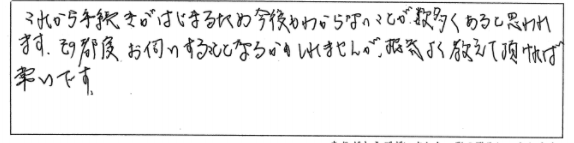 これから手続きがはじまるため今後もわからないことが数多くあると思われ
ます。その都度お伺いすることとなるかもしれませんが、根気よく教えて頂ければ
幸いです。